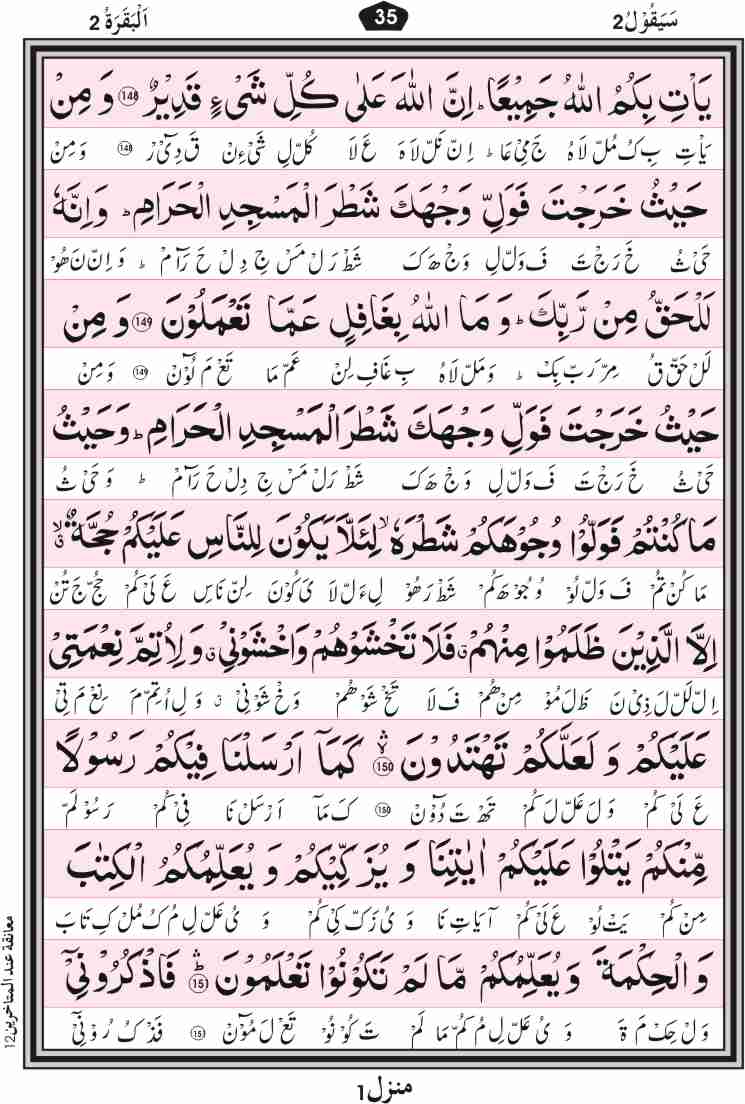 سَيَقُوْلُ 2
35
اَلْبَقَرَةُ 2
يَاْتِ بِكُمُ اللّٰهُ جَمِيْعًا ؕ اِنَّ اللّٰهَ عَلٰى كُلِّ شَىْءٍ قَدِيْرٌ ۝148 وَ مِنْ
يَاْتِ بِ كُ مُلّ لَا هُ جَ مِىْ عَا ؕ اِنّ نَلّ لَا هَ عَ لَا كُلّ لِ شَىْ ءِنْ قَ دِىْٓ رْ 148 وَ مِنْ
حَيْثُ خَرَجْتَ فَوَلِّ وَجْهَكَ شَطْرَ الْمَسْجِدِ الْحَرَامِ ؕ وَ اِنَّهٗ
حَىْ ثُ خَ رَجْ تَ فَ وَلّ لِ وَجْ هَ كَ شَطْ رَ لْ مَسْ جِ دِ لْ حَ رَآ مْ ؕ وَ اِنْ نَ هُوْ
لَلْحَقُّ مِنْ رَّبِّكَ ؕ وَ مَا اللّٰهُ بِغَافِلٍ عَمَّا تَعْمَلُوْنَ ۝149 وَ مِنْ
لَلْ حَقّ قُ مِرّ رَبّ بِكْ ؕ وَ مَلّ لَا هُ بِ غَافِ لِنْ عَمّ مَا تَعْ مَ لُوْٓنْ 149 وَ مِنْ
حَيْثُ خَرَجْتَ فَوَلِّ وَجْهَكَ شَطْرَ الْمَسْجِدِ الْحَرَامِ ؕ وَ حَيْثُ
حَىْ ثُ خَ رَجْ تَ فَ وَلّ لِ وَجْ هَ كَ شَطْ رَ لْ مَسْ جِ دِ لْ حَ رَآ مْ ؕ وَ حَىْ ثُ
مَا كُنْتُمْ فَوَلُّوْا وُجُوْهَكُمْ شَطْرَهٗ ۙ لِئَلَّا يَكُوْنَ لِلنَّاسِ عَلَيْكُمْ حُجَّةٌ ۙۗ
مَا كُنْ تُمْ فَ وَلّ لُوْ وُ جُوْ هَ كُمْ شَطْ رَ هُوْ لِ ءَ لّ لَا ىَ كُوْنَ لِنّ نَاسِ عَ لَىْ كُمْ حُجّ جَ تُنْ
اِلَّا الَّذِيْنَ ظَلَمُوْا مِنْهُمْ ۗ فَلَا تَخْشَوْهُمْ وَاخْشَوْنِىْ ۗ وَ لِاُتِمَّ نِعْمَتِىْ
اِلّ لَلّ لَ ذِىْ نَ ظَ لَ مُوْ مِنْ هُمْ فَ لَا تَخْ شَوْ هُمْ وَ خْ شَوْ نِىْ وَ لِ اُ تِمّ مَ نِعْ مَ تِىْ
عَلَيْكُمْ وَ لَعَلَّكُمْ تَهْتَدُوْنَ ۝150 كَمَاۤ اَرْسَلْنَا فِيْكُمْ رَسُوْلًا
عَ لَىْ كُمْ وَ لَ عَلّ لَ كُمْ تَهْ تَ دُوْٓنْ 150 كَ مَآ اَرْ سَلْ نَا فِىْ كُمْ رَ سُوْ لَمّ
مِّنْكُمْ يَتْلُوْا عَلَيْكُمْ اٰيٰتِنَا وَ يُزَكِّيْكُمْ وَ يُعَلِّمُكُمُ الْكِتٰبَ
مِنْ كُمْ يَتْ لُوْ عَ لَىْ كُمْ آيَاتِ نَا وَ ىُ زَكّ كِىْ كُمْ وَ ىُ عَلّ لِ مُ كُ مُلْ كِ تَا بَ
وَ الْحِكْمَةَ وَ يُعَلِّمُكُمْ مَّا لَمْ تَكُوْنُوْا تَعْلَمُوْنَ ۝151 فَاذْكُرُوْنِىْۤ
وَ لْ حِكْ مَ ةَ وَ ىُ عَلّ لِ مُ كُمْ مَا لَمْ تَ كُوْ نُوْ تَعْ لَ مُوْٓنْ 151 فَذْ كُ رُوْ نِىْٓ
معانقة عند المتاخرين 12
منزل 1